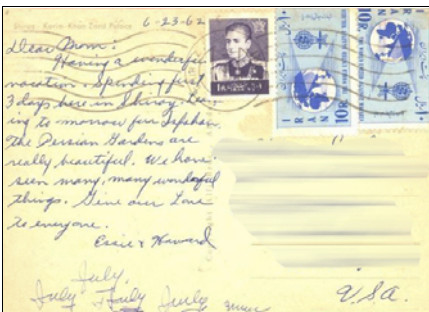 Shiraz - Karim Khan Zand Palace
6-23-62
Dear Mom:
Having a wonderful
vacation. Spending first
3 days here in Shiraz. Leav
ing to morrow for Isfahan.
The Persian Gardens are
really beautiful. We have
seen many, many wonderful
things. Give our Love
to everyone.
Essie & Howard
July
July July July
U.S.A.
I RAN
10R.
I RAN
10R